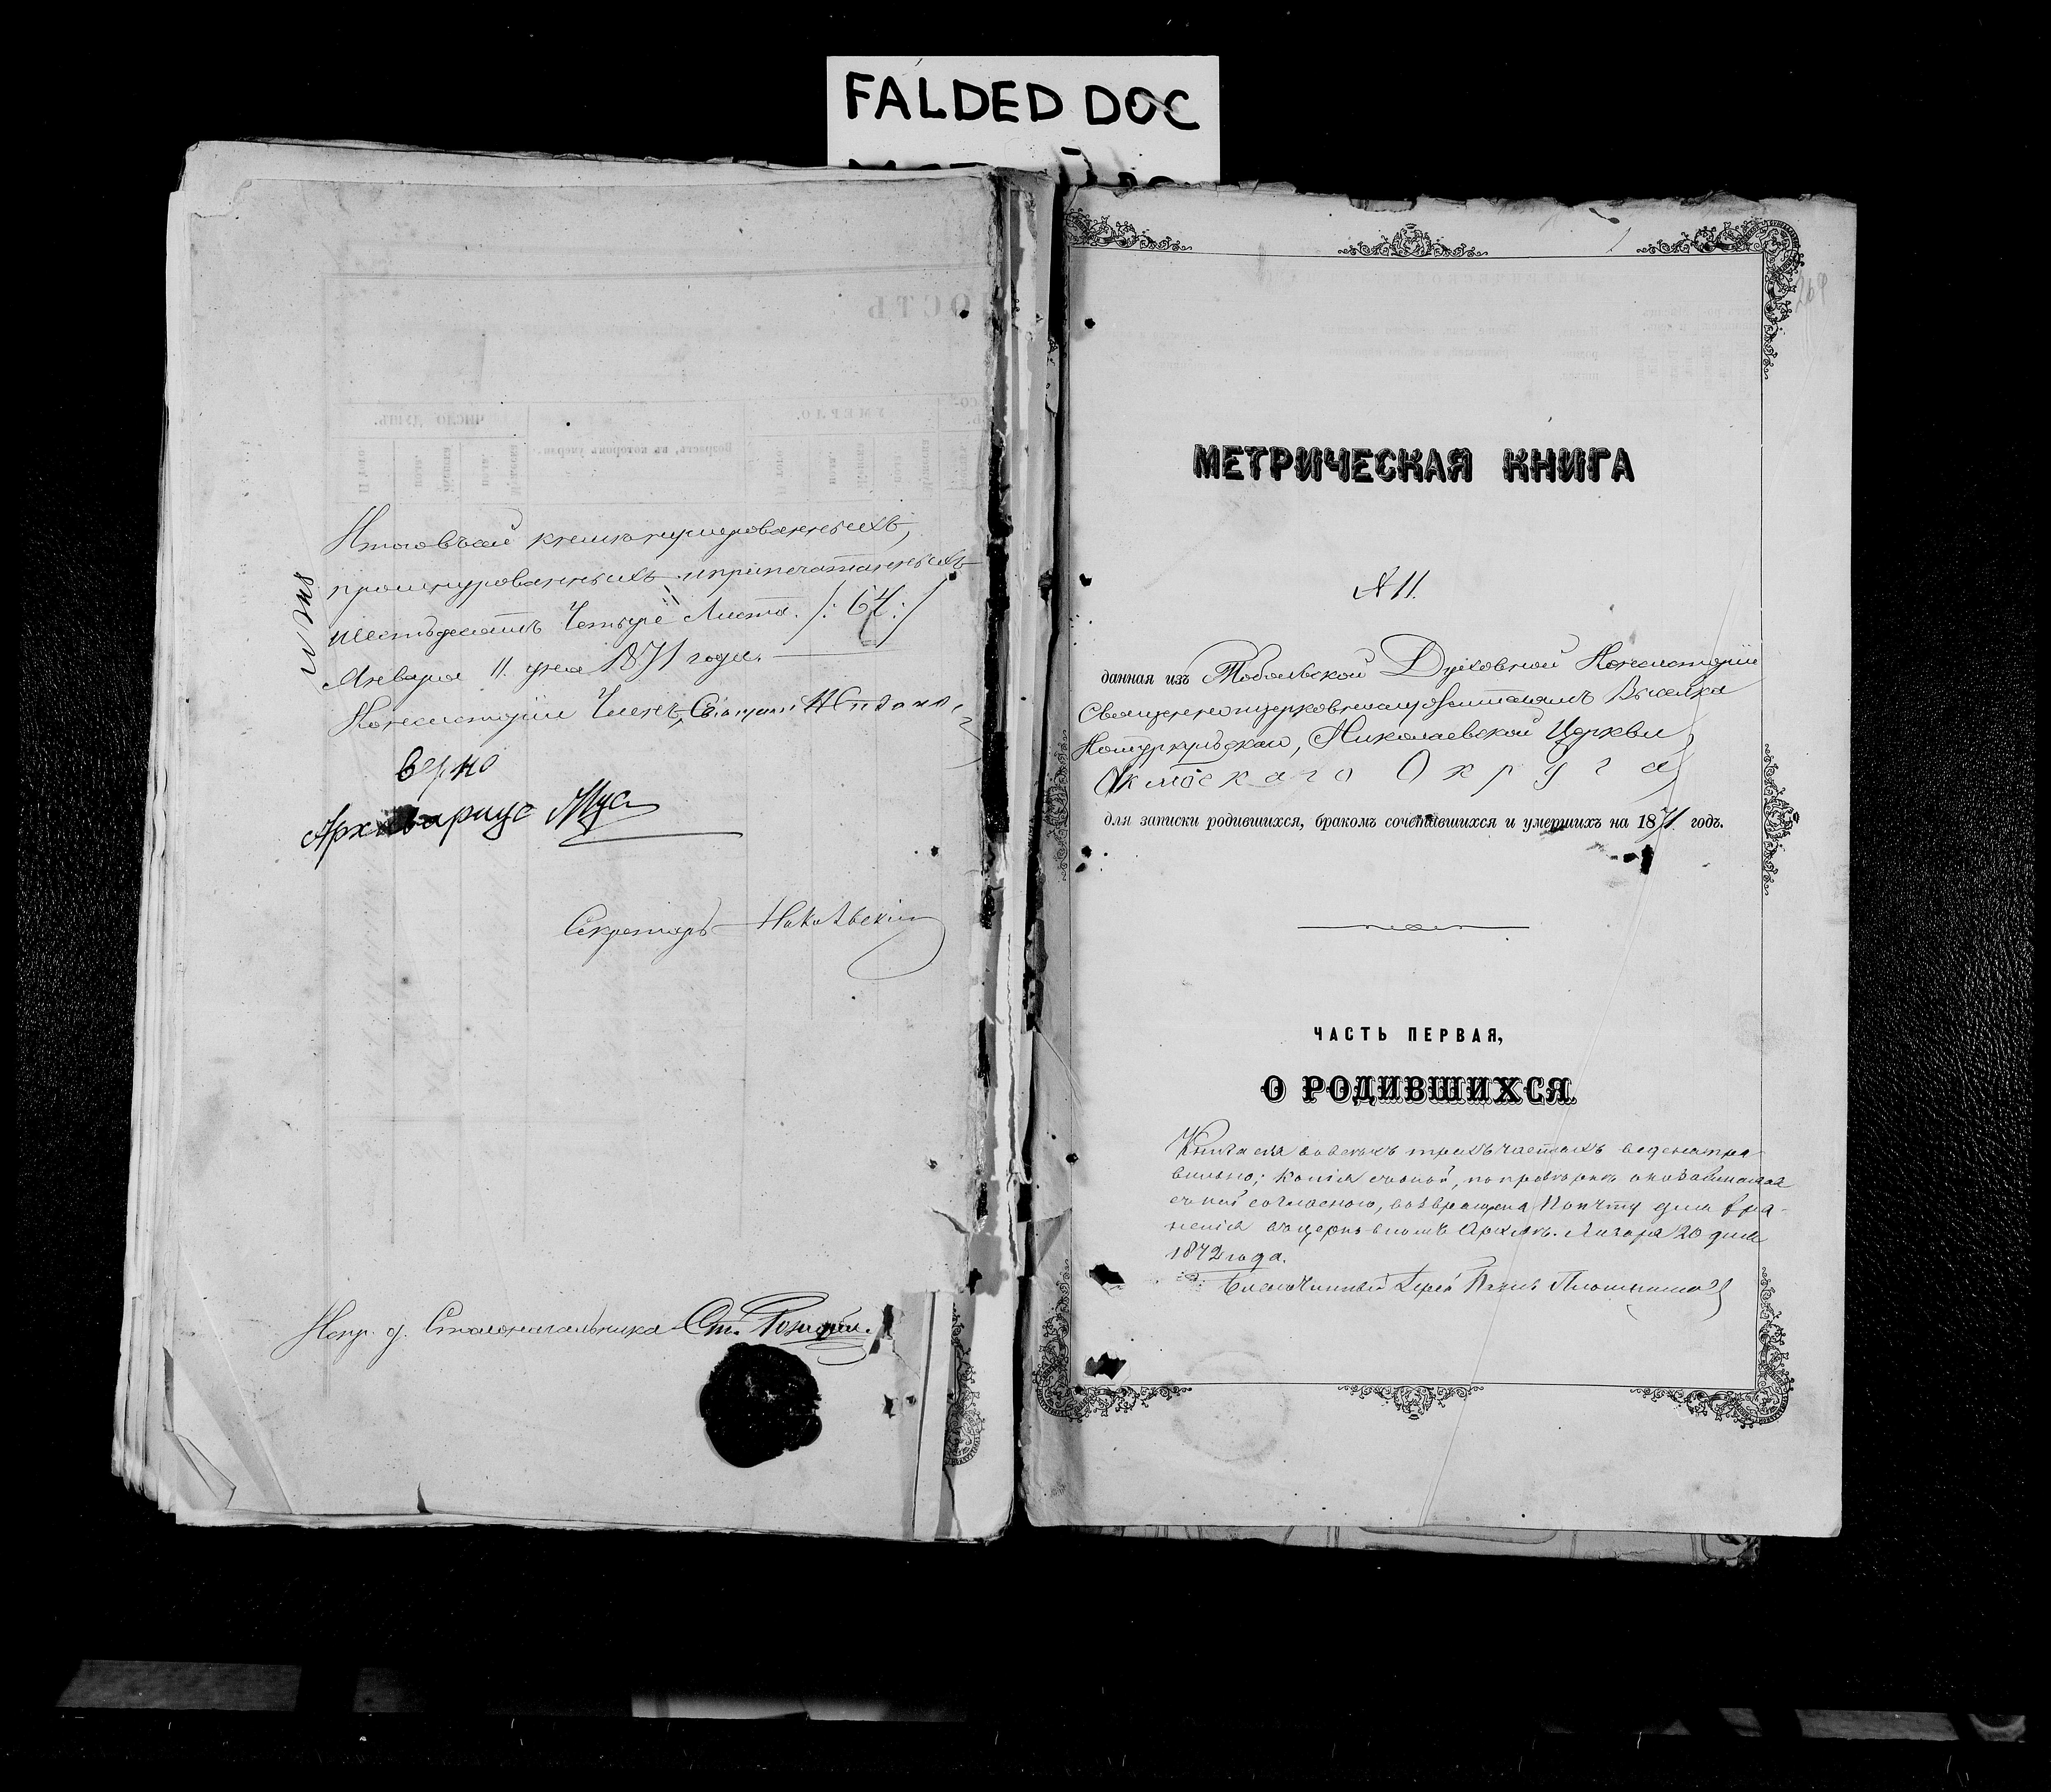 FALDED DOC
Итого въ сей книгѣ нумерованныхъ,
прошнурованныхъ и припечатанныхъ
шестьдесятъ четыре листа. /: 64 :/
Января 11 дня 1871 года.
Консисторіи Членъ, Священникъ
верно
Архивариус
Секретарь
Испр. д. Столоначальника
МЕТРИЧЕСКАЯ КНИГА
№ 11.
данная изъ Тобольской Духовной Консисторіи
Священноцерковнослужителямъ Выселка
Котуркульской, Николаевской Церкви,
Округа
для записки родившихся, бракомъ сочетавшихся и умершихъ на 1871 годъ.
ЧАСТЬ ПЕРВАЯ,
О РОДИВШИХСЯ.
Книга сія во всѣхъ трехъ частяхъ ведена пра-
вильно; копія съ оной, по провѣркѣ оказавшаяся
съ ней согласною, возвращена причту для хра-
ненія въ церковномъ Архивѣ. Января 20 дня
1872 года.
Благочинный Іерей